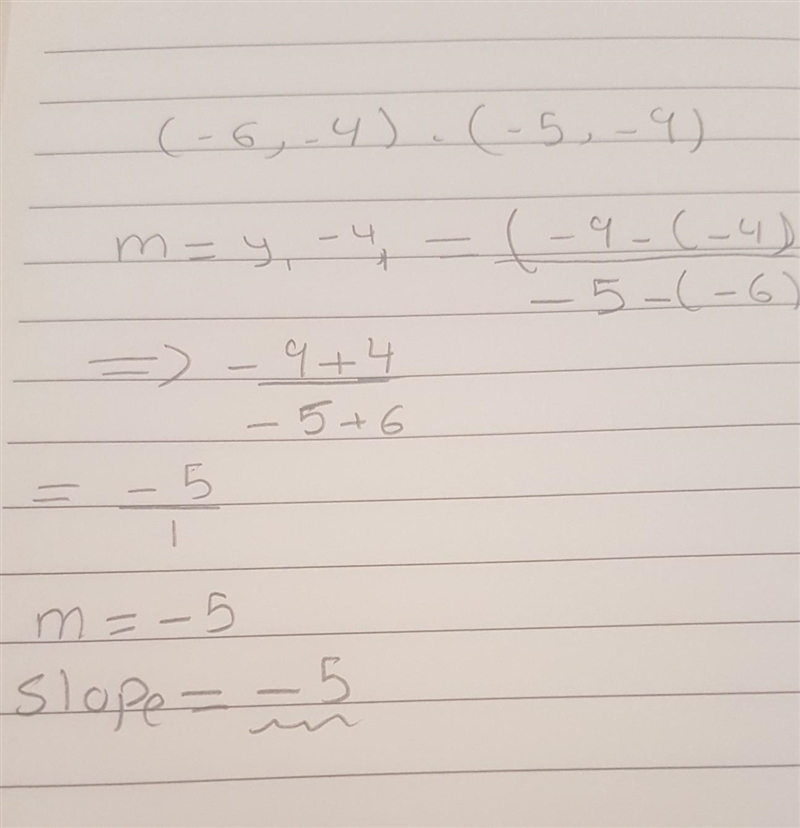 (-6, -4) . (-5, -9)
m = y, -4, = (-9-(-4)
-5-(-6)
=> -9+4
-5+6
= -5
1
m = -5
slope = -5